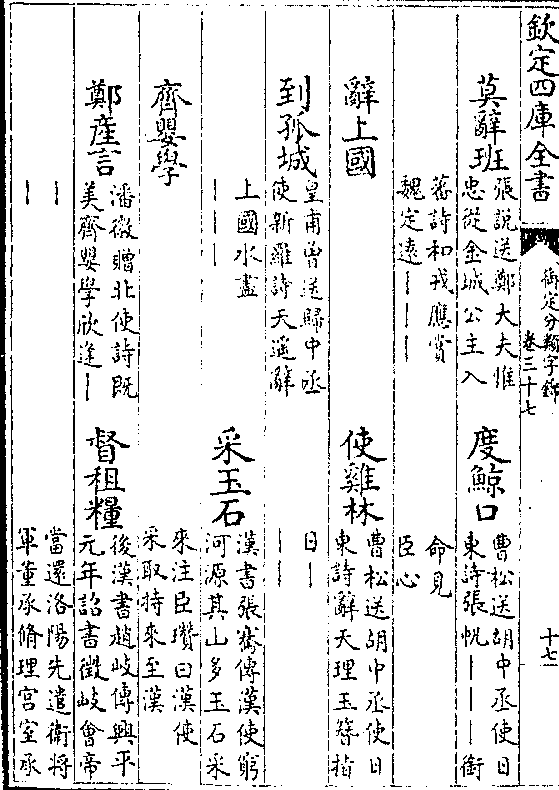 欽定四庫全書
御定分類字錦
卷三十七
十七
莫辭班
張說送鄭大夫惟
忠從金城公主入
蕃詩和戎應賞
魏定遠｜｜｜
度鯨口
曹松送胡中丞使日
東詩張帆｜｜｜銜
命見
臣心
辭上國
到孤城
皇甫曾送歸中丞
使新羅詩天遙辭
上國水盡
｜｜｜
使雞林
曹松送胡中丞使日
東詩辭天理玉簪指
日｜
｜｜
采玉石
漢書張騫傳漢使窮
河源其山多玉石采
來注臣瓚曰漢使
采取持來至漢
齊嬰學
鄭産言
潘徽贈北使詩既
美齊嬰學欣逢｜
｜
｜
督租糧
後漢書趙岐傳興平
元年詔書徵岐會帝
當還洛陽先遣衛將
軍董承脩理宮室承